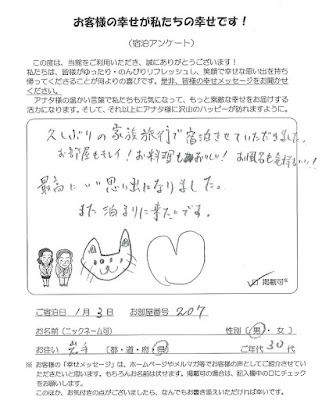 お客様の幸せが私たちの幸せです！
（宿泊アンケート）
この度は、当館をご利用いただき、誠にありがとうございます！
私たちは、皆様がゆったり・のんびりリフレッシュし、笑顔で幸せな思い出を持ち
帰ってくださることが何よりの喜びです。是非、皆様の幸せメッセージをお聞かせ
ください。
アナタ様の温かい言葉で私たちも元気になって、もっと素敵な幸せをお届けする
活力になります。そして、それ以上にアナタ様に沢山のハッピーが訪れますように。
久しぶりの家族旅行で宿泊させていただきました。
お部屋もキレイ！お料理もおいしい！お風呂も気持ちいい！
最高にいい思い出になりました。
また泊まりに来たいです。
掲載可※
ご宿泊日 1月3日 お部屋番号 207
お名前（ニックネーム可） 性別（男・女）
お住い 岩手（都・道・府・県） ご年代 30代
※ お客様の「幸せメッセージ」は、ホームページやメルマガ等でお客様の声としてご紹介させてい
ただきたいと思います。もちろんお名前は伏せます。掲載可の場合は、記入欄中の口にチェック
をお願いします。
このほか、お気付きの点がございましたら、なんでもお書き添えいただければ幸いです。